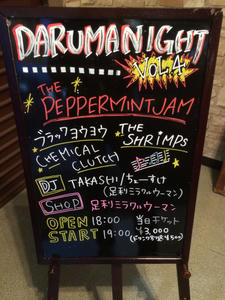 DARUMANIGHT
VOL.4
THE
PEPPERMINTJAM
ブラックヨウヨウ
THE
SHRIMPS
CHEMICAL
CLUTCH
DJ TAKASHI/ちょーすけ
(足利ミラクルウーマン)
SHOP 足利ミラクルウーマン
OPEN 18:00
START 19:00
当日チケット
¥3,000